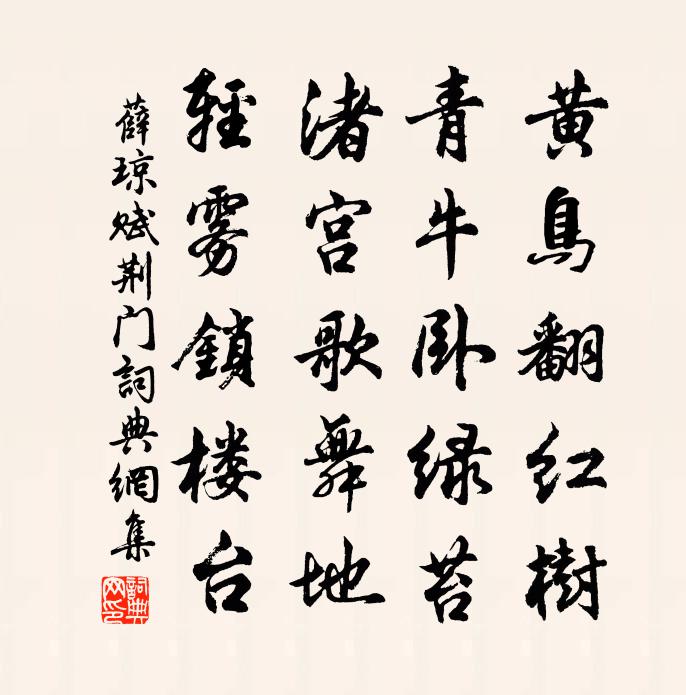 黄鳥翻红樹
青牛卧绿苔
渚宫歌舞地
輕雾鎖楼台
薛琼赋荆门詞典網集
詞典网印